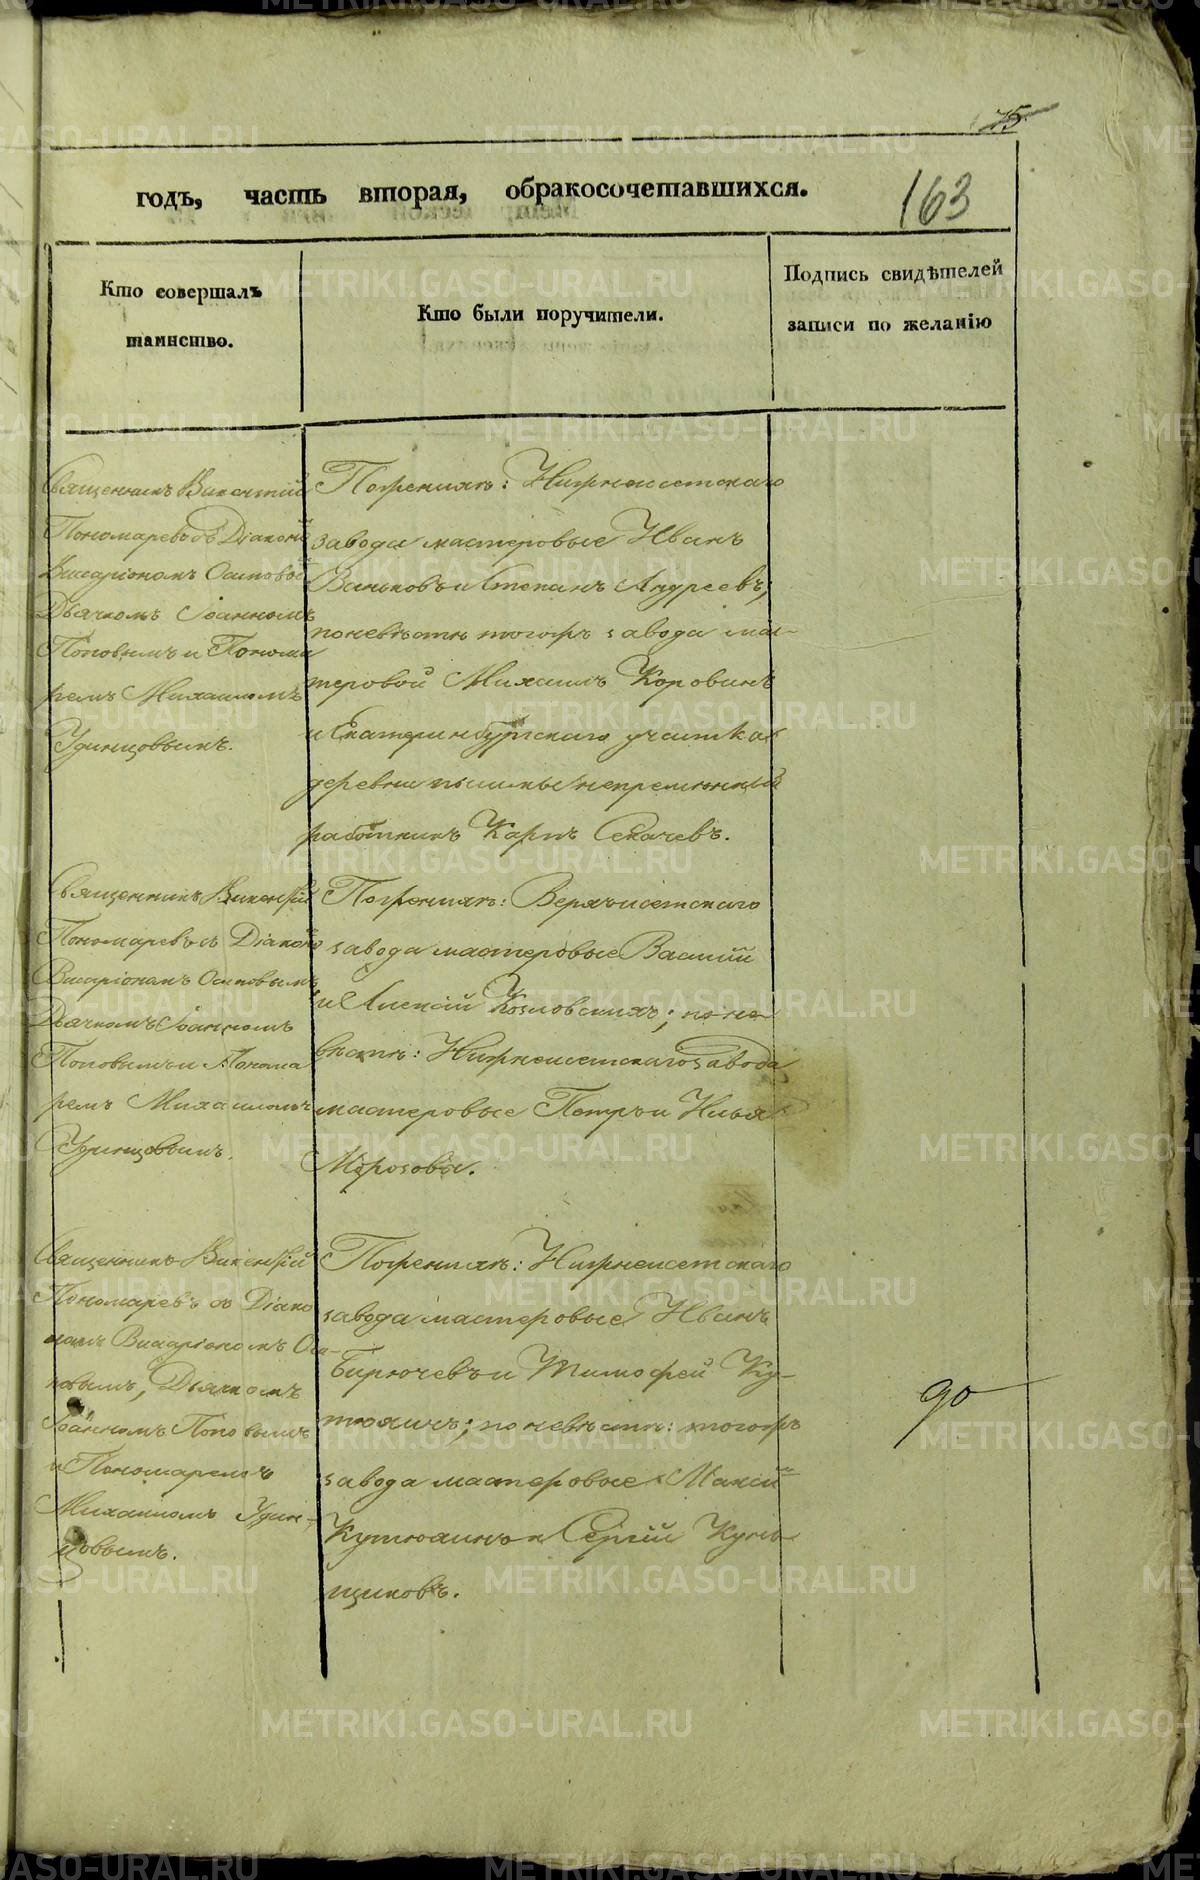 75
годъ, часть вторая, обракосочетавшихся.
163
Кто совершалъ
таинство.
Кто были поручители.
Подпись свидѣтелей
записи по желанію
Священникъ Викентій
Пономаревъ съ Діакон
Висаріономъ Осиповы
Дьячкомъ Іоанномъ
Поповымъ и Понома
ремъ Михаиломъ
Удинцовымъ.
По женихѣ: Нижнеисетскаго
завода мастеровые Иванъ
Ваньковъ и Степанъ Андреевъ;
по невѣстѣ тогожъ завода мас-
теровой Михаилъ Коровинъ
и Екатеринбургскаго участка
деревни пышмы непремѣнный
работникъ Карпъ Секачевъ.
Священникъ Викентій
Пономаревъ съ Діаконо
Висаріономъ Осиповымъ
Дьячкомъ Іоанномъ
Поповымъ и Понома
ремъ Михаиломъ
Удинцовымъ.
По женихѣ: Верхъисетскаго
завода мастеровые Василій
и Алексій Козловскихъ; по не-
вѣстѣ: Нижнеисетскаго завода
мастеровые Петръ и Илья
Морозовы.
Священникъ Викентій
Пономаревъ съ Діако
номъ Висаріономъ Оси-
повымъ, Дьячкомъ
Іоанномъ Поповымъ
и Пономаремъ
Михаиломъ Удин-
цовымъ.
По женихѣ: Нижнеисетскаго
завода мастеровые Иванъ
Бирючевъ и Тимофей Ку-
тюхинъ; по невѣстѣ: тогожъ
завода мастеровые Максим
Кутюхинъ и Сергій Кунь
щиковъ.
90
METRIKI.GASO-URAL.RU